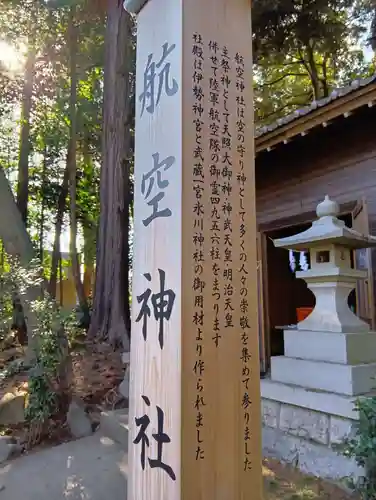 航空神社
航空神社は空の守り神として多くの人々の崇敬を集めて参りました
主祭神として天照大御神・神武天皇・明治天皇
併せて陸軍航空隊の御霊四九五六柱をまつり
社殿は伊勢神宮と武蔵一宮氷川神社の御用材より作られました